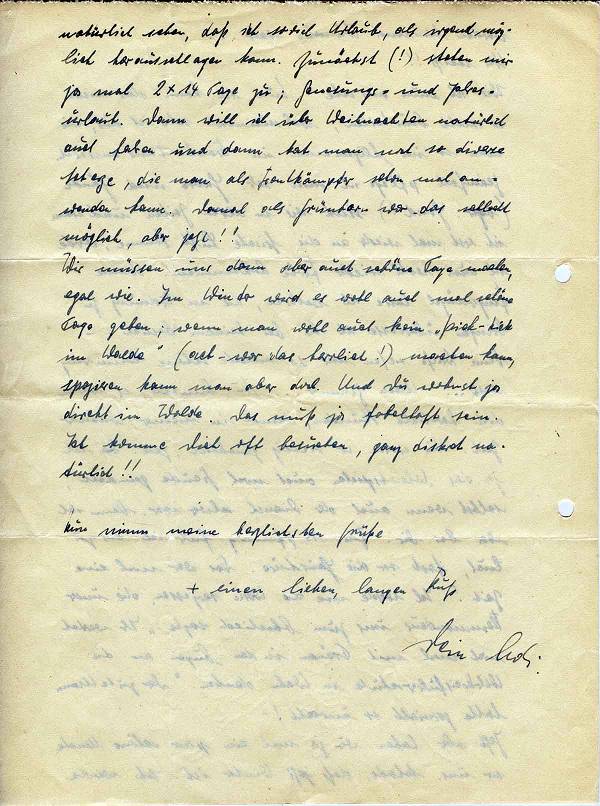 natürlich sehen, daß ich soviel Urlaub, als irgend mög-
lich herausschlagen kann. Zunächst (!) stehen mir
ja mal 2 x 14 Tage zu; Genesungs- und Jahres-
urlaub. Dann will ich über Weihnachten natürlich
auch fahren und dann hat man noch so diverse
, die man als Frontkämpfer schon mal an-
wenden kann. Damals als war das schlecht
möglich, aber jetzt!!
Wir müssen uns dann aber auch schöne Tage machen,
egal wie. Im Winter wird es wohl auch mal schöne
Tage geben; wenn man wohl auch kein „Pick-nick
im Walde" (ach - war das herrlich!) machen kann,
spazieren kann man aber doch. Und Du wohnst ja
direkt im Walde. Das muß ja fabelhaft sein.
Ich komme Dich oft besuchen, ganz diskret na-
türlich!!
Nun nimm meine herzlichsten Grüße
+ einen lieben, langen Kuß
Dein